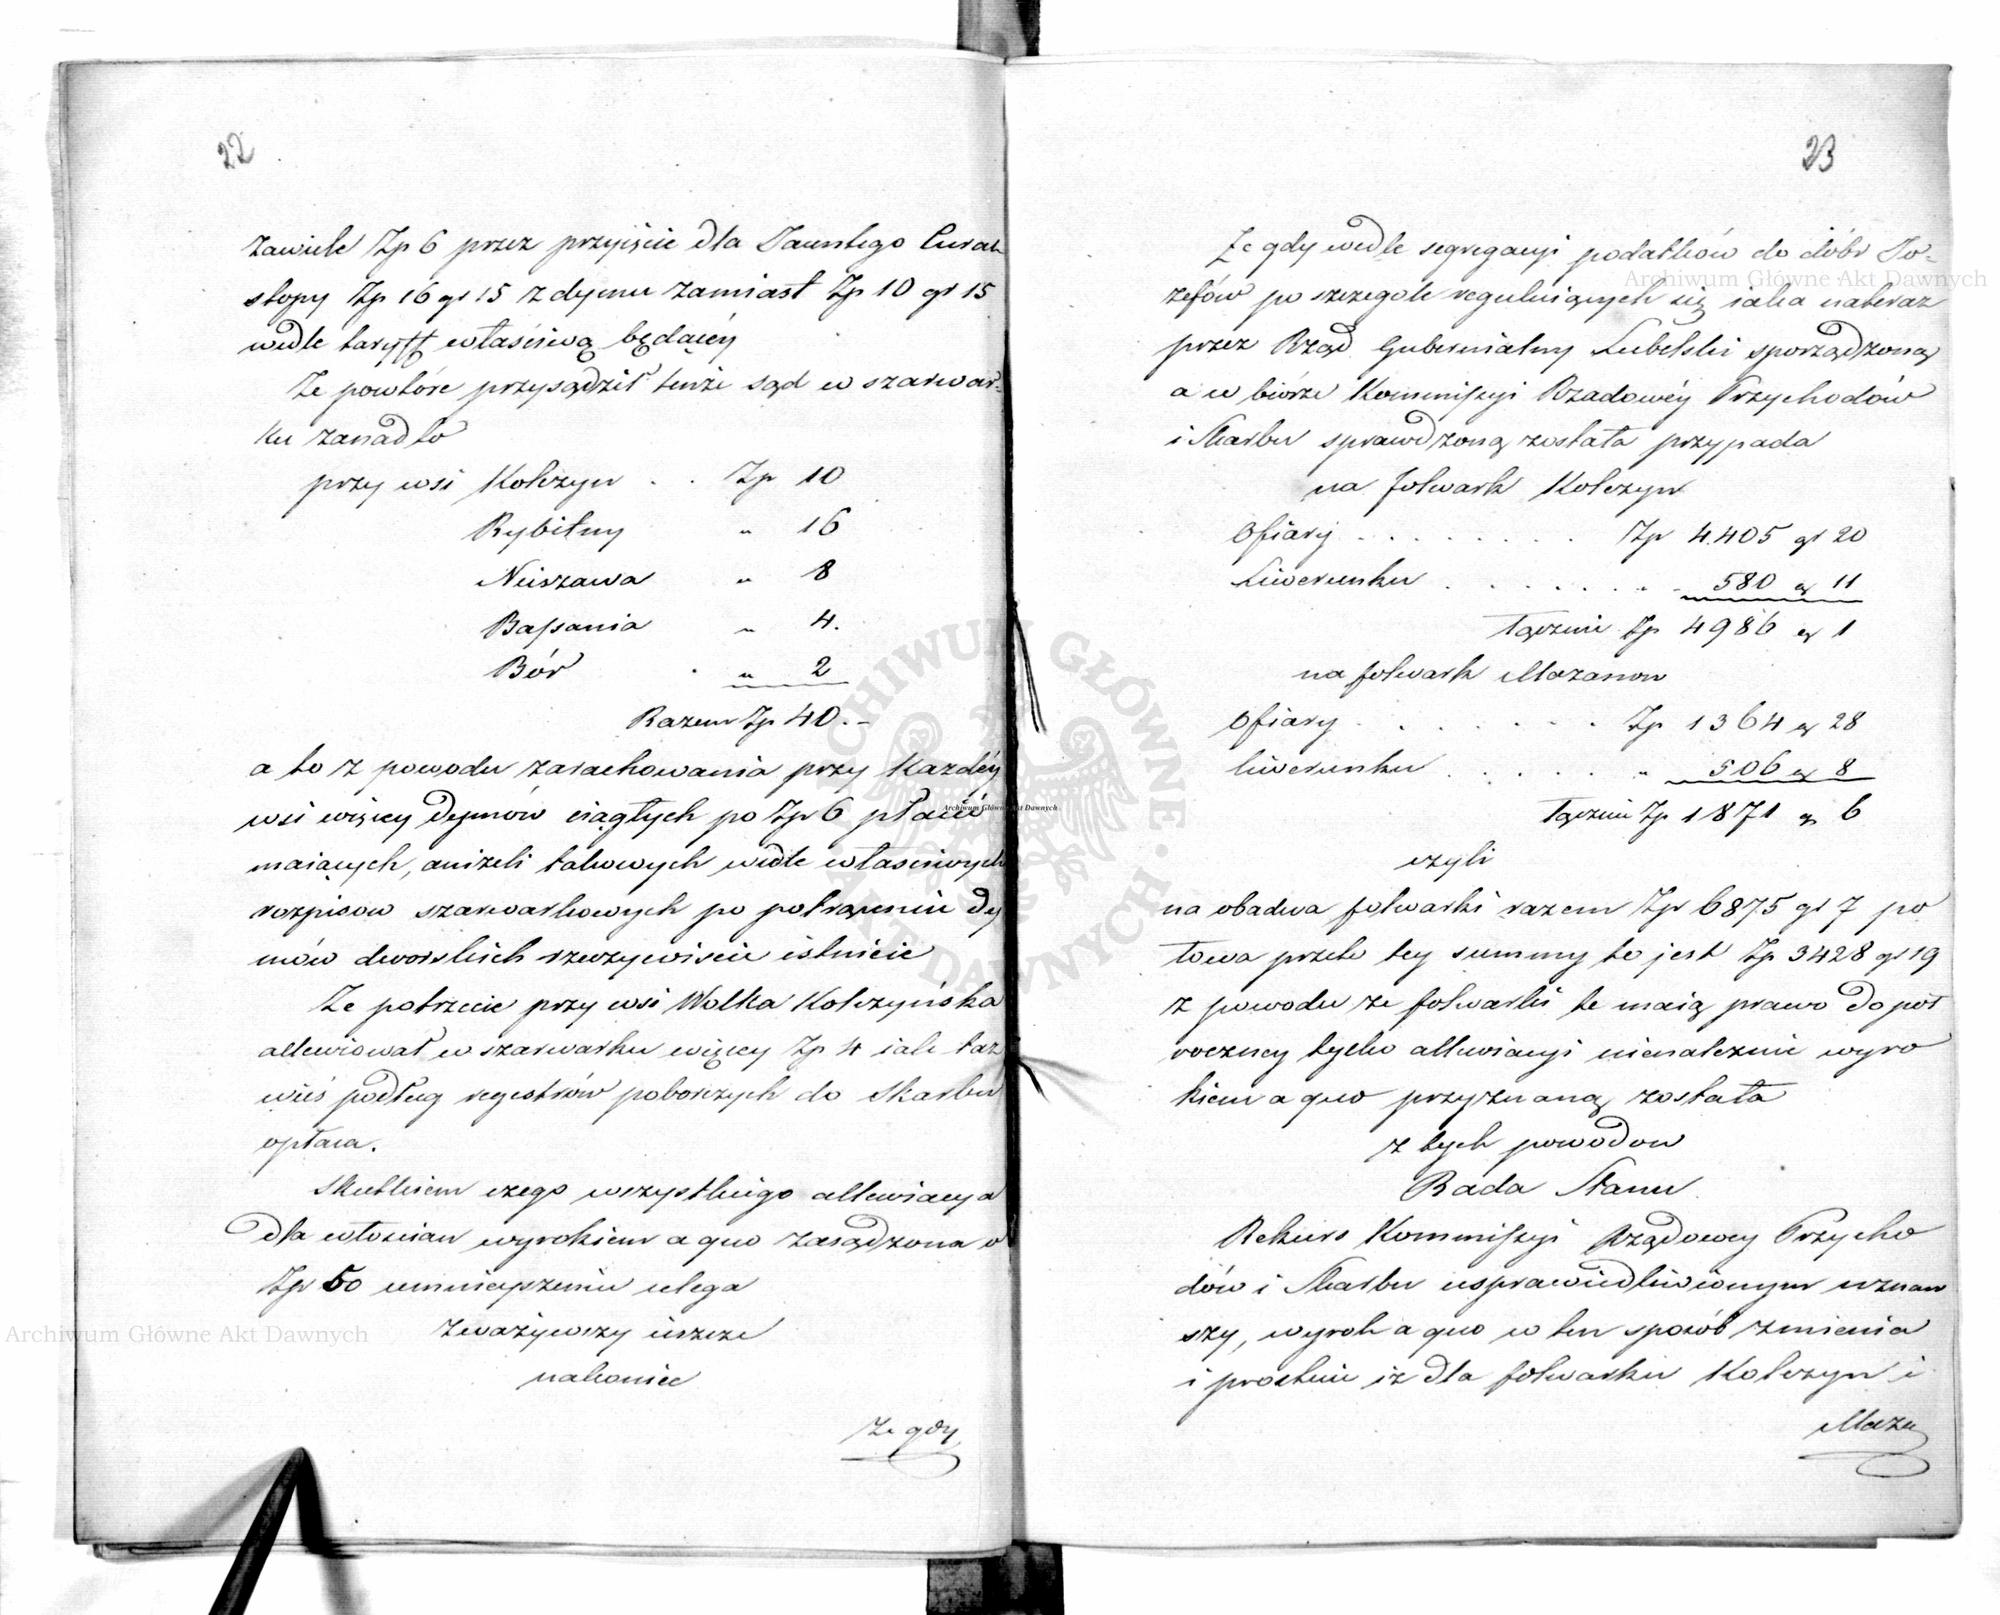 22
zawiele Zp 6 przez przyięcie dla
stopy Zp 16 gr 15 z dymu zamiast Zp 10 gr 15
wedle taryff właściwą będącéy
Że powtóre przysądził tenże sąd w szarwar-
ku zanadto
przy wsi Kolczyn . . Zp 10
Rybitwy " 16
Nieszawa " 8
Baſsania " 4.
Bór . " 2
Razem Zp 40.-
a to z powodu zarachowania przy każdéy
wsi więcey dymów ciągłych po Zp 6 płacić
maiących, aniżeli takowych wedle właściwych
rozpisow szarwarkowych po potrąceniu dy
mów dworskich rzeczywiście istnieie
Że potrzecie przy wsi Wolka Kolczyńska
allewiował w szarwarku więcey Zp 4 iak taż
wieś podług regestrów poborczych do Skarbu
opłaca.
Skutkiem czego wszystkiego allewiacya
dla włościan wyrokiem a quo zasądzona o
Zp 50 umnieyszeniu ulega
Zważywszy ieszcze
nakoniec
Że gdy
23
Że gdy wedle segregacyi podatków do dóbr Jo-
zefów po szczególe reguluiących się iaka nateraz
przez Rząd Gubernialny Lubelski sporządzoną
a w biórze Kommiſsyi Rządowéy Przychodów
i Skarbu sprawdzoną została przypada
na folwark Kolczyn
Ofiary . . . . . . . . Zp 4.405 gr 20
Liwerunku . . . . . . " - 580 " 11
Łącznie Zp 4986 " 1
na folwark Mazanow
Ofiary . . . . . . . Zp 1364 " 28
liwerunku . . . . . " 506 " 8
Łącznie Zp 1871 " 6
czyli
na obadwa folwarki razem Zp 6875 gr 7 po
łowa przeto tey summy to jest Zp 3428 gr 19
z powodu że folwarki te maią prawo do pół
roczney tylko allewiacyi nienależnie wyro
kiem a quo przyznaną została
z tych powodow
Rada Stanu
Rekurs Kommiſsyi Rządowey Przycho
dów i Skarbu usprawiedliwionym uznaw
szy, wyrok a quo w ten sposób zmienia
i prostuie iż dla folwarku Kolczyn i
Maza
Archiwum Główne Akt Dawnych
Archiwum Główne Akt Dawnych
Archiwum Główne Akt Dawnych
ARCHIWUM GŁÓWNE AKT DAWNYCH